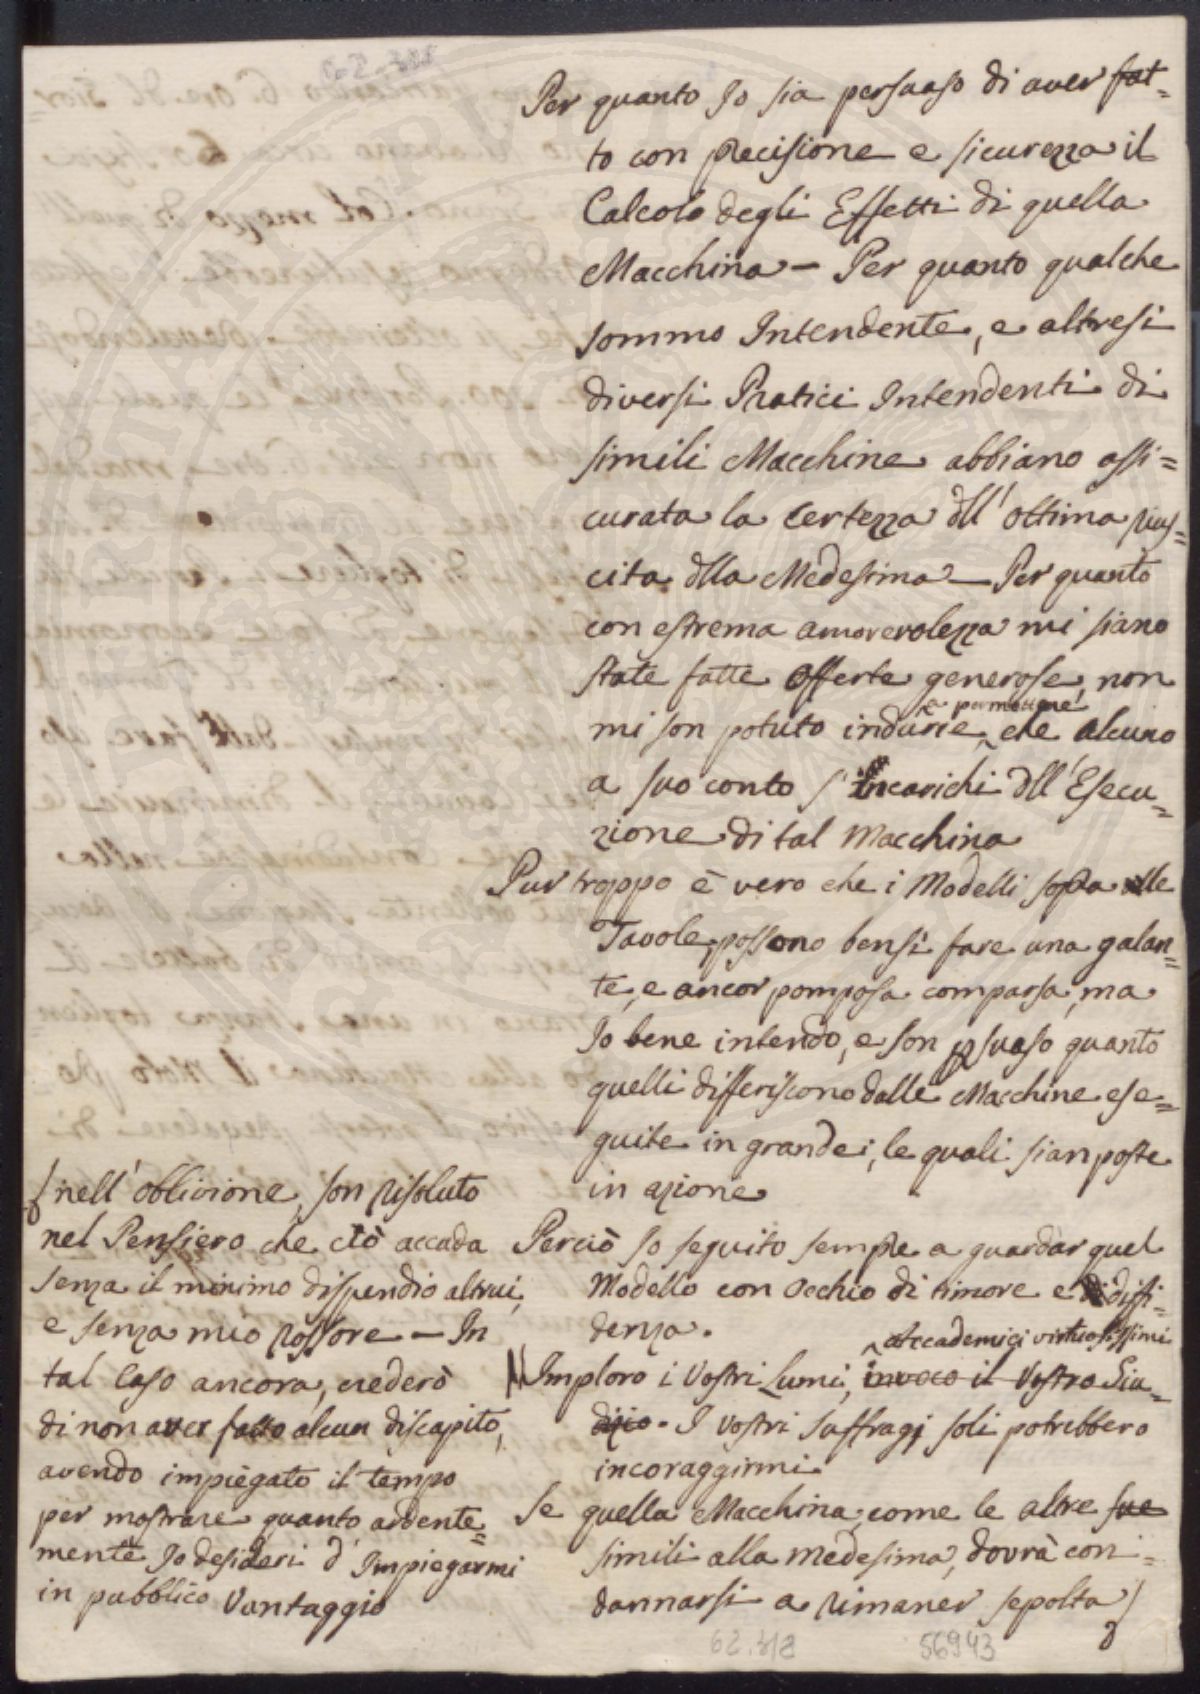 Per quanto Io sia persuaso di aver fat=
to con precisione e sicurezza il
Calcolo degli Effetti di quella
Macchina — Per quanto qualche
sommo Intendente, e altresi
diversi Pratici Intendenti di
simili Macchine abbiano assi=
curata la Certezza dll' ottima rius=
cita dlla Medesima — Per quanto
con estrema amorevolezza mi siano
state fatte offerte generose, non
a permettere
mi son potuto indurre, che alcuno
a suo conto s' incarichi dll' Esecu=
zione di tal Macchina
Pur troppo è vero che i Modelli sopra alle
Tavole, possono bensì fare una galan=
te, e ancor pomposa comparsa, ma
Io bene intendo, e son psuaso quanto
quelli differiscono dalle Macchine ese=
guite in grande, le quali sian poste
in azione
Perciò Io seguito sempre a guardar quel
Modello con occhio di timore e di diffi=
denza.
Accademici virtuosissimi
Imploro i Vostri Lumi, invoco il Vostro Giu=
dizio. I vostri suffragj soli potrebbero
incoraggirmi
Se quella Macchina, come le altre sue
simili alla medesima, dovrà con=
dannarsi a rimaner sepolta
nell' oblivione, son risoluto
nel Pensiero che ciò accada
senza il minimo dispendio altrui,
e senza mio rossore — In
tal Caso ancora, crederò
di non aver fatto alcun discapito,
avendo impiegato il tempo
per mostrare quanto ardente=
mente Io desideri d' Impiegarmi
in pubblico Vantaggio
62.318
56943